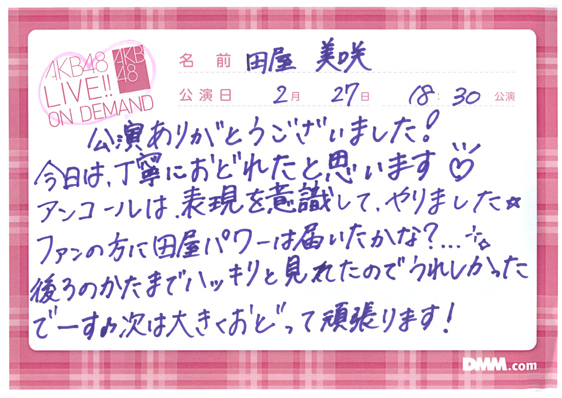 AKB48
LIVE!!
ON DEMAND
AKB
48
名前 田屋 美咲
公演日 2月 27日 18:30 公演
公演ありがとうございました!
今日は、丁寧におどれたと思います♡
アンコールは、表現を意識して、やりました☆
ファンの方に田屋パワーは届いたかな?...☆
後ろのかたまでハッキリと見れたのでうれしかった
でーす♪次は大きくおどって頑張ります!
DMM.com